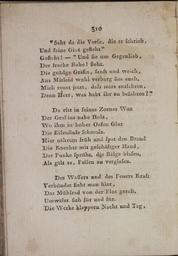 310
"Seht da die Verse, die er schrieb,
Und seine Glut gesteht"
Gesteht! — "Und sie um Gegenlieb,
Der freche Bube! fleht.
Die gnädge Gräfin, sanft und weich,
Aus Mitleid wohl verbarg sies euch,
Mich reuet jetzt, daß mirs entfahren,
Denn Herr, was habt ihr zu befahren?"
Da ritt in seines Zornes Wut
Der Graf ins nahe Holz,
Wo ihm in hoher Öfen Glut
Die Eisenstufe schmolz.
Hier nährten früh und spat den Brand
Die Knechte mit geschäftger Hand,
Der Funke sprüht, die Bälge blasen,
Als gält es, Felsen zu verglasen.
Des Wassers und des Feuers Kraft
Verbündet sieht man hier,
Das Mühlrad von der Flut gerafft,
Umwälzt sich für und für.
Die Werke klappern Nacht und Tag,